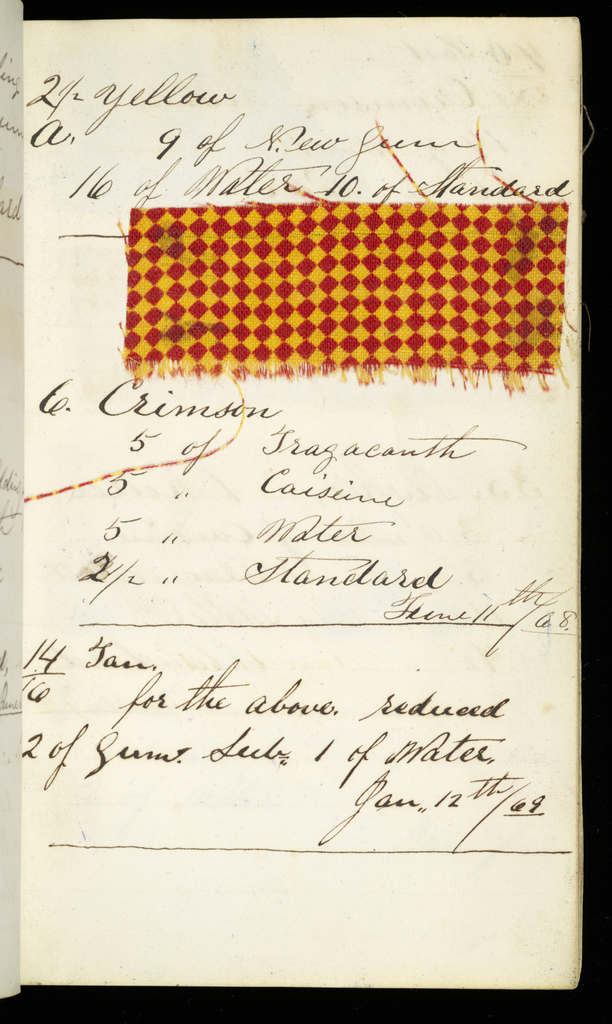 2½ Yellow
A. 9 of New Gum
16 of Water 10. of Standard
6. Crimson
5 of Tragacanth
5 " Caiseine
5 " Water
2½ " Standard
June 11th/68.
14 Tan.
16 for the above. reduced
2 of Gum. Sub: 1 of Water.
Jan,, 12th/69